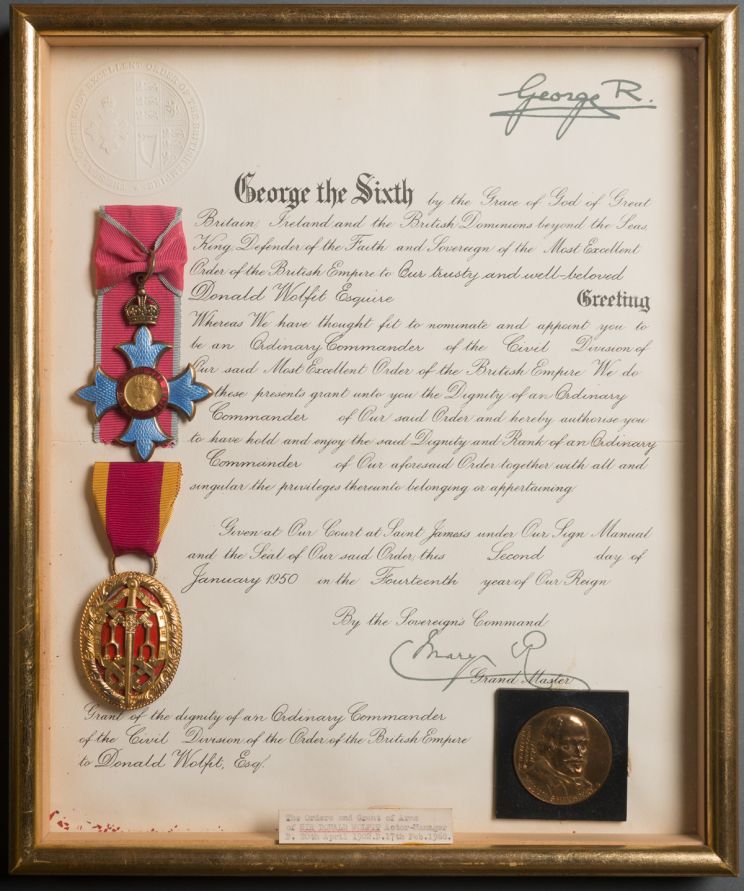 George R.
George the Sixth by the Grace of God of Great
Britain, Ireland and the British Dominions beyond the Seas
King, Defender of the Faith and Sovereign of the Most Excellent
Order of the British Empire to Our trusty and well-beloved
Donald Wolfit Esquire Greeting
Whereas We have thought fit to nominate and appoint you to
be an Ordinary Commander of the Civil Division of
Our said Most Excellent Order of the British Empire We do
these presents grant unto you the Dignity of an Ordinary
Commander of Our said Order and hereby authorise you
to have hold and enjoy the said Dignity and Rank of an Ordinary
Commander of Our aforesaid Order together with all and
singular the privileges thereunto belonging or appertaining
Given at Our Court at Saint James's under Our Sign Manual
and the Seal of Our said Order this Second day of
January 1950 in the Fourteenth year of Our Reign
By the Sovereign's Command
Mary R
Grand Master
Grant of the dignity of an Ordinary Commander
of the Civil Division of the Order of the British Empire
to Donald Wolfit, Esq.
The Orders and Grant of Arms
of SIR DONALD WOLFIT Actor-Manager
B. 20th April 1902.D.17th Feb.1968.